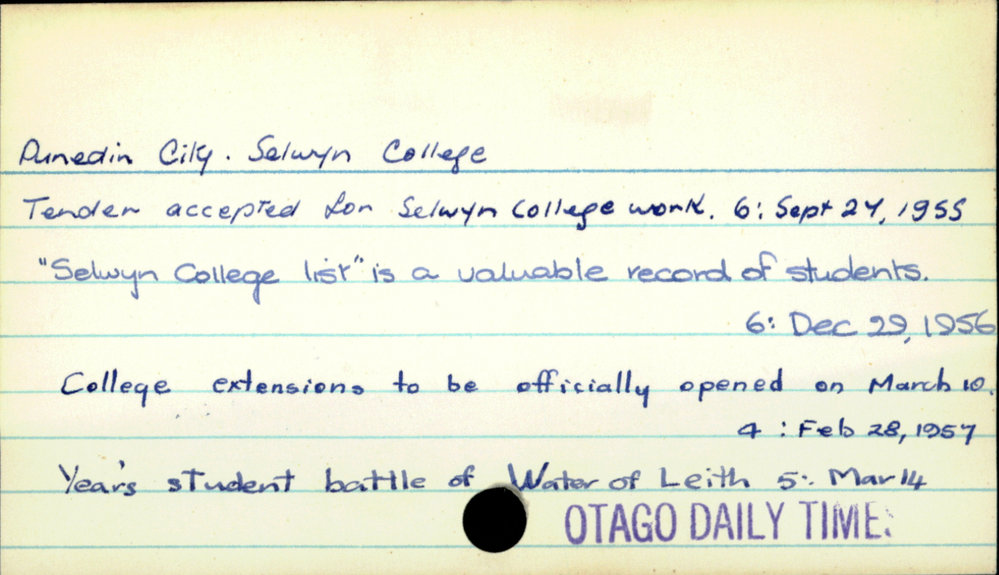 Dunedin City. Selwyn College
Tender accepted for Selwyn College work. 6: Sept 24, 1955
"Selwyn College list" is a valuable record of students.
6: Dec 29, 1956
College extensions to be officially opened on March 10.
4 : Feb 28, 1957
Year's student battle of Water of Leith 5: Mar 14
OTAGO DAILY TIMES